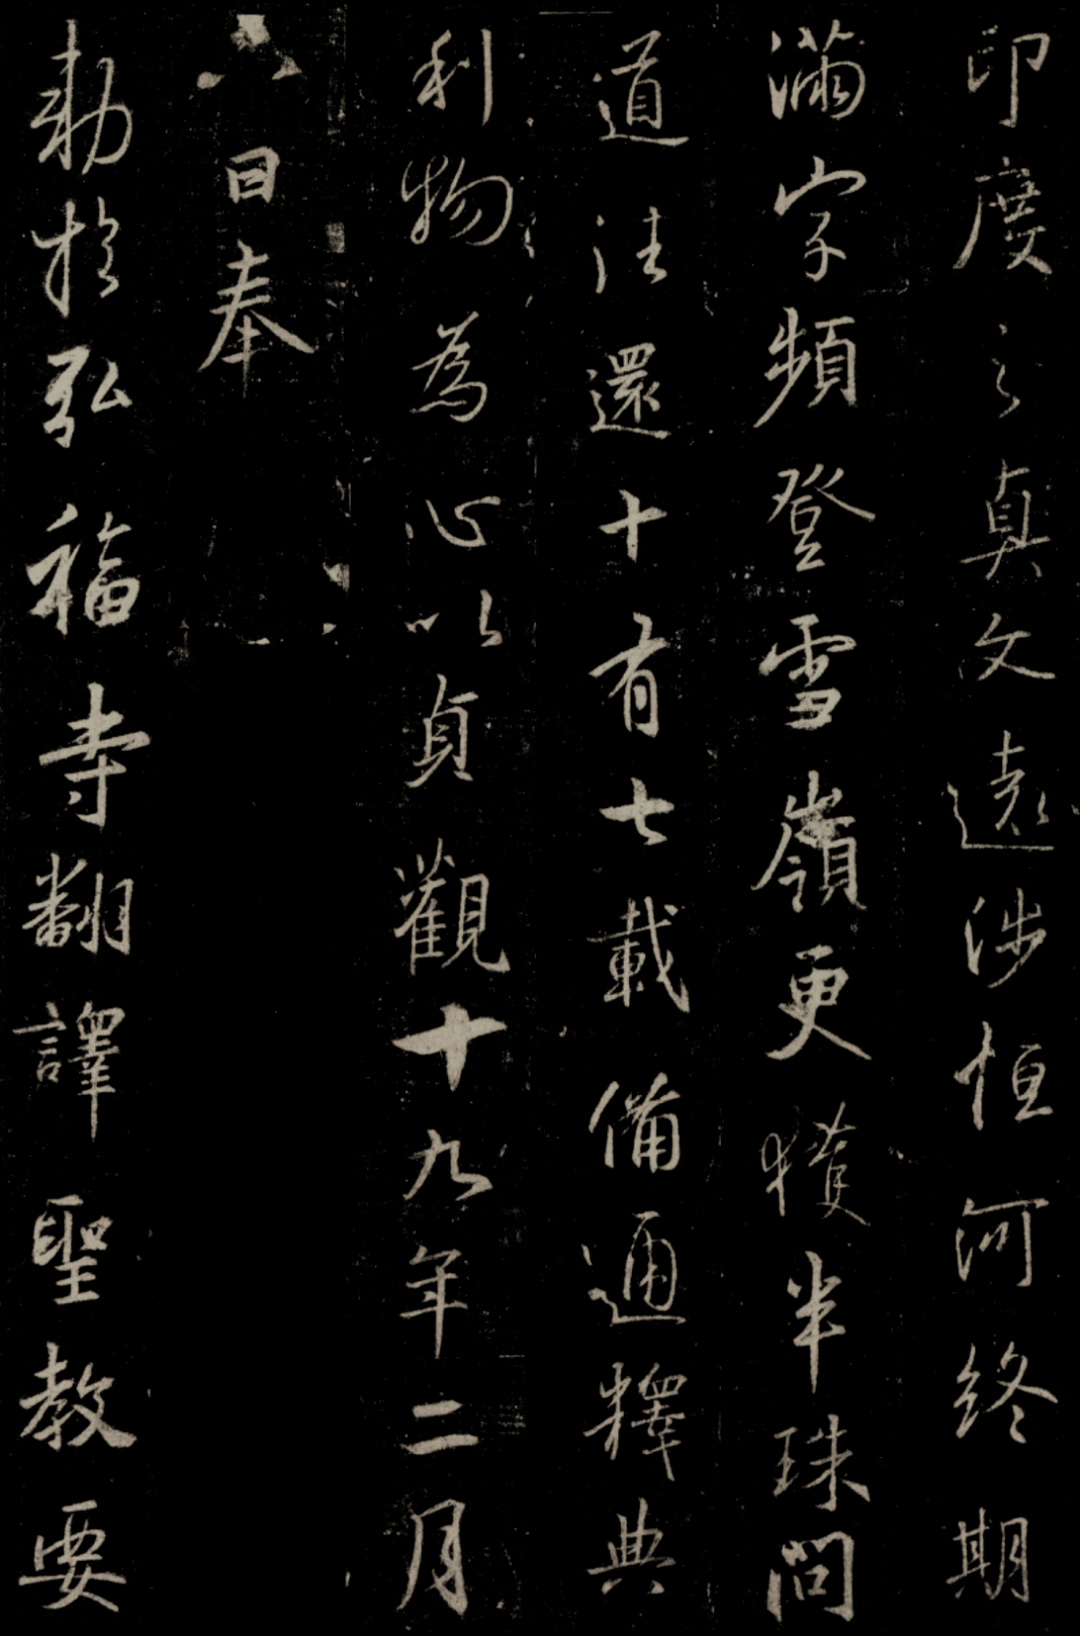 印度之真文遠涉恒河終期
滿字頻登雪嶺更獲半珠問
道法還十有七載備通釋典
利物為心以貞觀十九年二月
六日奉
勅於弘福寺翻譯聖教要